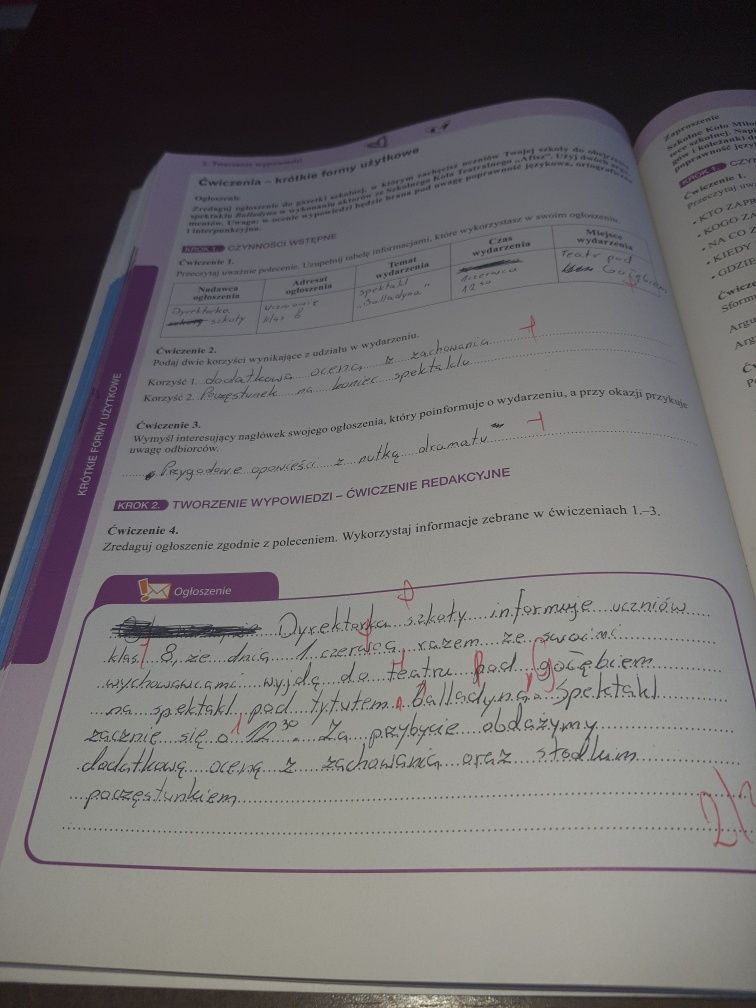 2. Tworzenie wypowiedzi
Ćwiczenia – krótkie formy użytkowe
Ogłoszenie
Zredaguj ogłoszenie do gazetki szkolnej, w którym zachęcisz uczniów Twojej szkoły do obejrzenia
spektaklu Balladyna w wykonaniu aktorów ze Szkolnego Koła Teatralnego „Afisz”. Użyj dwóch argu-
mentów. Uwaga: w ocenie wypowiedzi będzie brana pod uwagę poprawność językowa, ortograficzna
i interpunkcyjna.
KROK 1. CZYNNOŚCI WSTĘPNE
Ćwiczenie 1.
Przeczytaj uważnie polecenie. Uzupełnij tabelę informacjami, które wykorzystasz w swoim ogłoszeniu.
Nadawca ogłoszenia
Adresat ogłoszenia
Temat wydarzenia
Czas wydarzenia
Miejsce wydarzenia
Dyrektorka szkoły
Uczniowie klas 8
Spektakl „Balladyna”
czerwca 12 30
Teatr pod Gołębiem
Ćwiczenie 2.
Podaj dwie korzyści wynikające z udziału w wydarzeniu.
Korzyść 1. dodatkowa ocena z zachowania
Korzyść 2. Poczęstunek na koniec spektaklu
Ćwiczenie 3.
Wymyśl interesujący nagłówek swojego ogłoszenia, który poinformuje o wydarzeniu, a przy okazji przykuje
uwagę odbiorców.
Przygodowe opowieści z nutką dramatu
KROK 2. TWORZENIE WYPOWIEDZI – ĆWICZENIE REDAKCYJNE
Ćwiczenie 4.
Zredaguj ogłoszenie zgodnie z poleceniem. Wykorzystaj informacje zebrane w ćwiczeniach 1.–3.
Ogłoszenie
Dyrektorka szkoły informuje uczniów
klas 8, że dnia 1 czerwca razem ze swoimi
wychowawcami wyjdą do teatru pod gołębiem
na spektakl pod tytułem Balladyna. Spektakl
zacznie się o 12 30. Za przybycie obdażymy
dodatkową oceną z zachowania oraz słodkim
poczęstunkiem
KRÓTKIE FORMY UŻYTKOWE
Zaproszenie
KROK 1.
Ćwiczenie 1.
• KTO
• KOGO
• NA CO
• KIEDY
• GDZIE